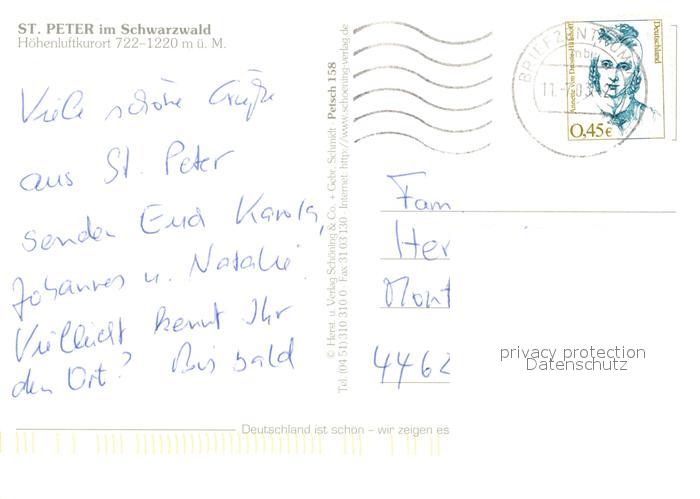 ST. PETER im Schwarzwald
Höhenluftkurort 722–1220 m ü. M.
Viele schöne Grüße
aus St. Peter
senden Euch Karola,
Johannes u. Natalie.
Vielleicht kennt Ihr
den Ort? Bis bald
© Herst. u. Verlag Schöning & Co. + Gebr. Schmidt Petsch 158
Tel. (04 51) 310 310 0 · Fax 31 03 130 · Internet: http://www.schoening-verlag.de
BRIEFZENTRUM
11.
Annette von Droste-Hülshoff
Deutschland
0,45€
Fam
Her
Mont
4462
privacy protection
Datenschutz
Deutschland ist schön – wir zeigen es